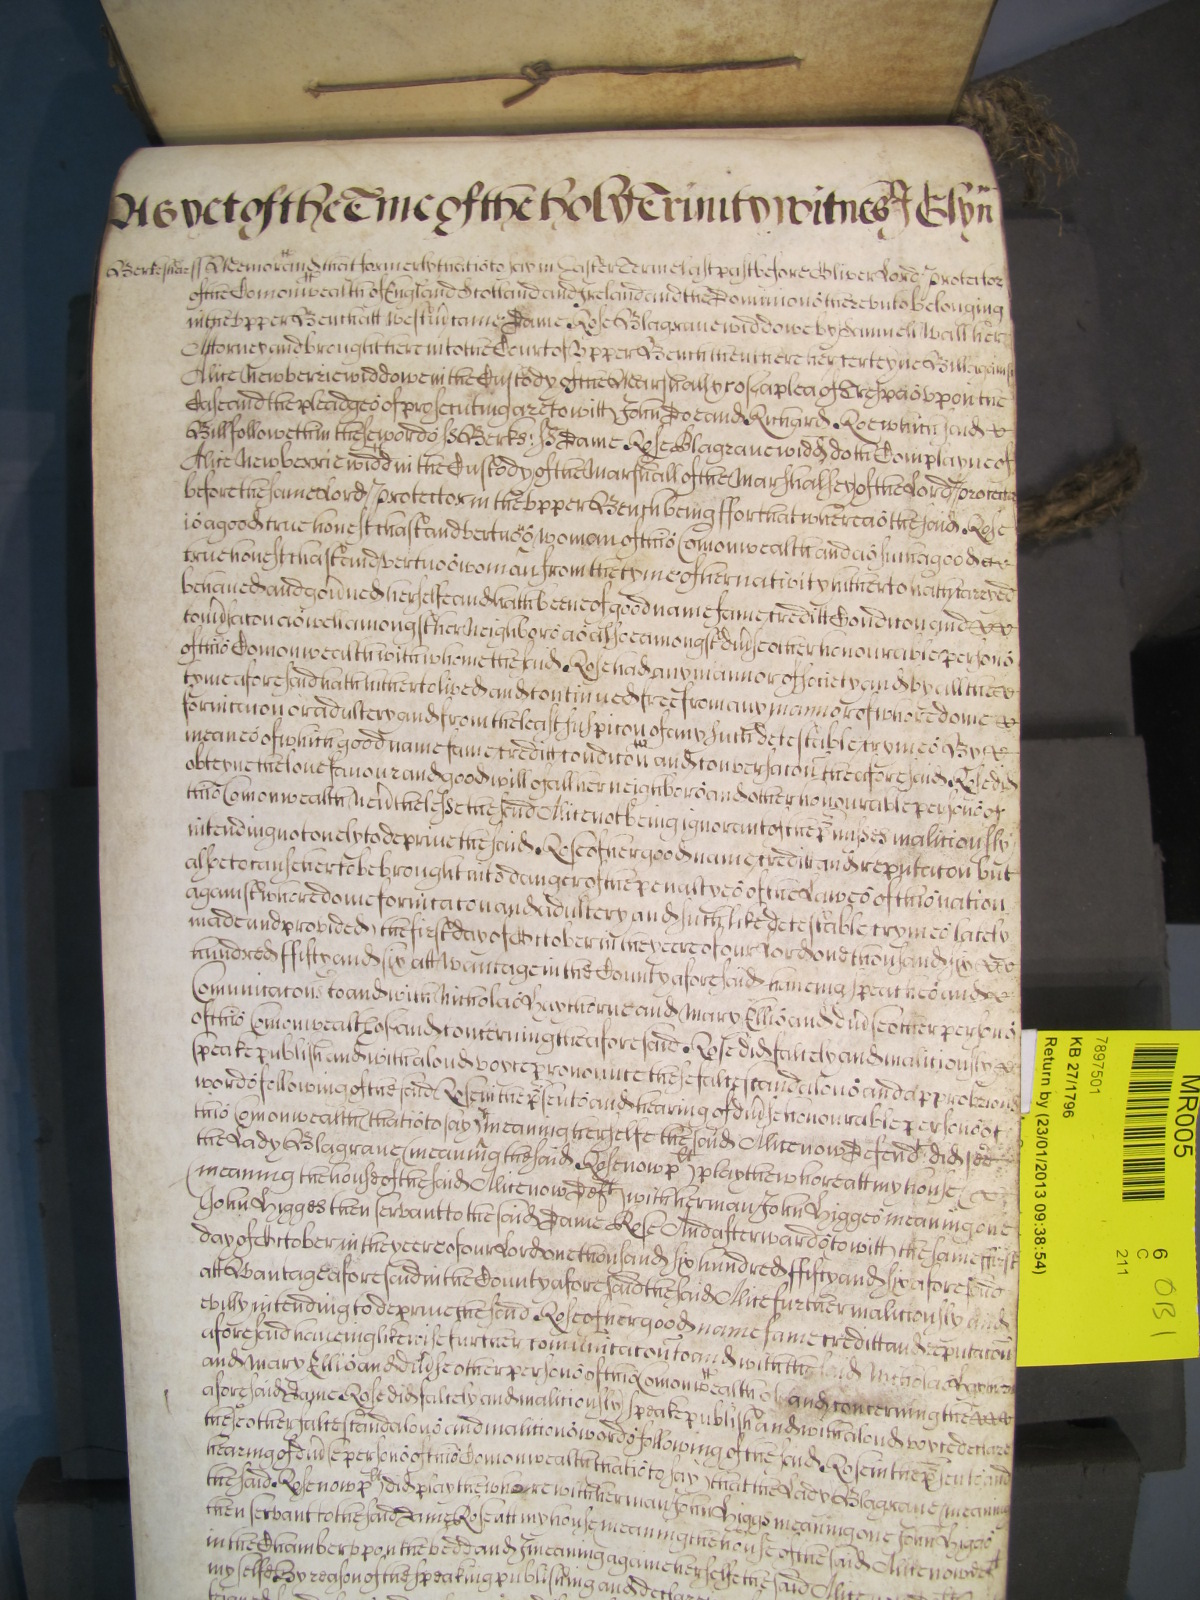 As yet of the Tme of the holy Trinity witnes J Glyn
Berkeshire ss Memorand that formerly that is to say in Easter Terme last past before Oliver Lord Protector
of the Comonwealth of England Scotland and Ireland and the Dominions thereunto belonging
in the upper Bench att Westm came Dame Rose Blagrave widdowe by Samuell Wall her
Attorney and brought here into the Court of Upper Bench then there her certeyne Bill against
Alice Newberrie widdowe in the Custody of the Marshall &c of a plea of Trespas uppon the
Case and the pleadges of prosecuting are to witt John Doe and Richard Roe which said
Bill followeth in these words ss Berks: ss Dame Rose Blagrave widd doth Complayne of
Alice Newberrie widd in the Custody of the Marshall of the Marshalsey of the Lord Protector
before the same Lord Protector in the upper Bench being ffor that whereas the said Rose
is a good true honest chast and vertuos woman of this Comonwealth and as such a good
true honest chast and vertuos woman from the tyme of her nativity hitherto hath
behaved and govned herselfe and hath beene of good name fame creditt Condicon and
convsacon as well amongst her Neighbors as also amongst divse other honourable persons
of this Comonwealth with whome the said Rose had any mannor of society and by all the
tyme aforesaid hath hitherto lived and continued free from any mannor of whoredome
fornicacon or adultery and from the least suspicon of any such detestable crymes By
meanes of which good name fame creditt condicon and conversacon the aforesaid Rose did
obteyne the love favour and good will of all her neighbors and other honourable persons of
this Comonwealth Nevtheless the said Alice not being ignorant of the pmisses malitiously
intending not onely to deprive the said Rose of her good name creditt and reputacon but
alsoe to cause her to be brought into danger of the penaltyes of the Lawes of this nation
against whoredome fornicacon and Adultery and such like detestable crymes lately
made and provided the first day of October in the yeere of our Lord one thousand six
hundred ffifty and six att Wantage in the County aforesaid haveing speaches and
Comunicacons to and with Nicholas Haythorne and Mary Ellis and divse other persons
of this Comonwealth of and concerning the aforesaid Rose did falsely and malitiously
speake publish and with a loud voyce pronounce these false scandalous and approbrious
words following of the said Rose in the psence and hearing of divse honourable persons of
this Comonwealth that is to say I (meaning herselfe the said Alice now Defend) did see
the Lady Blagrave (meaning the said Rose now plt) play the whore att my house
(meaning the house of the said Alice now Deft) with her man John Higges meaning one
John Higges then servant to the said Dame Rose And afterwards to witt the same ffirst
day of October in the yeere of our Lord one thousand six hundred ffifty and six aforesaid
att Wantage aforesaid in the County aforesaid the said Alice further malitiously and
evilly intending to deprive the said Rose of her good name fame creditt and reputacon
aforesaid haveing likewise further comunicacon to and with the said Nicholas
and Mary Ellis and divse other persons of this Comonwealth of and concerning the
aforesaid Dame Rose did falsely and malitiously speake publish and with a loud voyce declare
these other false scandalous and malitious words following of the said Rose in the psence and
hearing of divse persons of this Comonwealth that is to say that the Lady Blagrave (meaning
the said Rose now plt) did play the whore with her man John Higgs meaning one John Higgs
then servant to the said Dame Rose att my house meaning the house of the said Alice now deft
in the Chamber uppon the bedd and I meaning againe herselfe the said Alice now deft
my selfe By reason of the speaking publishing and
MR005
7897501
KB 27/1796
Return by (23/01/2013 09:38:54)
6
C
211
OB 1